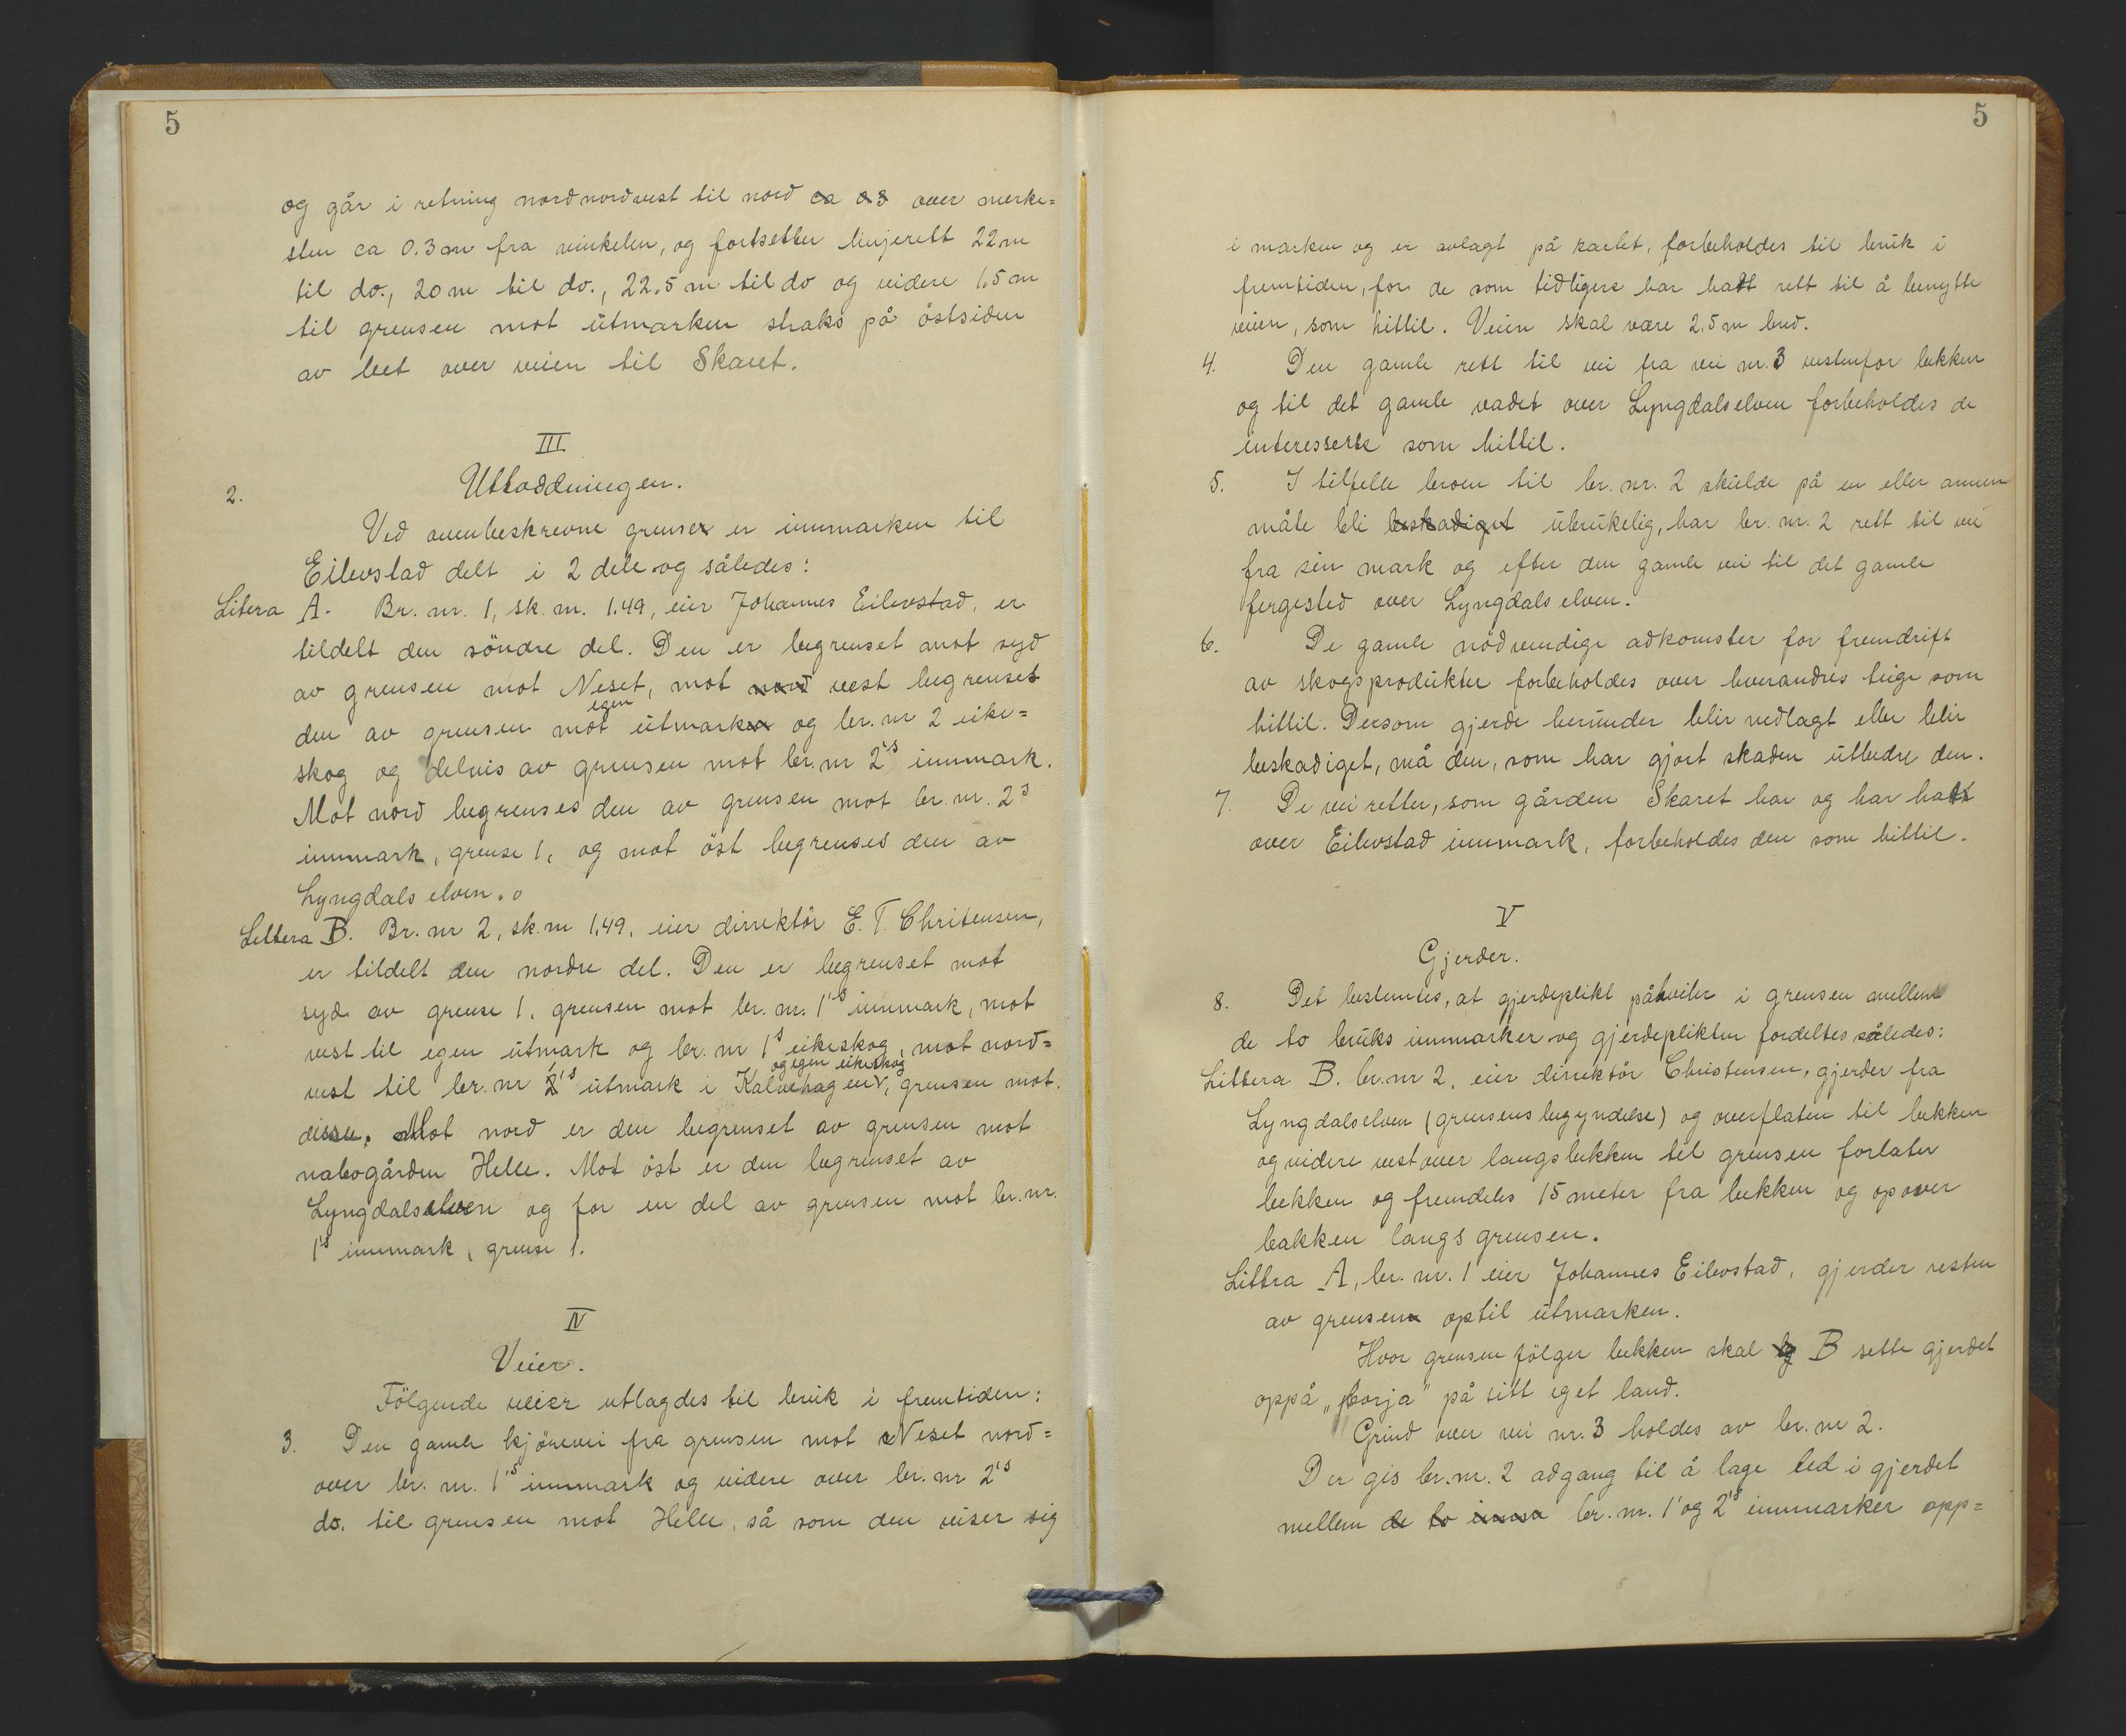 5
og går i retning nordnordvest til nord ca 0.3 over merke=
sten ca 0.3 m fra vinkelen, og fortsetter linjerett 22 m
til do., 20 m til do., 22.5 m til do og videre 1,5 m
til grensen mot utmarken straks på östsiden
av leet over veien til Skaret.
III
2. Utloddningen.
Ved ovenbeskrevne grenser er innmarken til
Eilevstad delt i 2 dele og således:
Litera A. Br. nr. 1, sk. m. 1.49, eier Johannes Eilevstad, er
tildelt den söndre del. Den er begrenset mot syd
av grensen mot Neset, mot nord vest begrenses
den av grensen mot egen utmarken og br. nr 2 eike=
skog og delvis av grensen mot br. nr 2's innmark.
Mot nord begrenses den av grensen mot br. nr. 2s
innmark, grense 1, og mot öst begrenses den av
Lyngdalselven.
Lettera B. Br. nr 2, sk. m 1,49, eier direktör E. T. Chritensen,
er tildelt den nordre del. Den er begrenset mot
syd av grense 1, grensen mot br. nr. 1's innmark, mot
vest til egen utmark og br. nr 1's eikeskog, mot nord=
og egen eikeskog
vest til br. nr 2's utmark i Kalvehagen, grensen mot
disse. Mot nord er den begrenset av grensen mot
nabogården Helle. Mot öst er den begrenset av
Lyngdalselven og for en del av grensen mot br. nr.
1's innmark, grense 1.
IV
Veier.
Fölgende veier utlagdes til bruk i fremtiden:
3. Den gamle kjörevei fra grensen mot Neset nord=
over br. nr. 1's innmark og videre over br. nr 2's
do. til grensen mot Helle, så som den viser sig
5
i marken og er avlagt på kartet, forbeholdes til bruk i
fremtiden, for de som tidligere har hatt rett til å benytte
veien, som hittil. Veien skal være 2,5 m bred.
4. Den gamle rett til vei fra vei nr. 3 vestenfor bekken
og til det gamle vadet over Lyngdalselven forbeholdes de
interesserte som hittil.
5. I tilfelle broen til br. nr. 2 skulde på en eller annen
måte bli beskadiget ubrukelig, har br. nr. 2 rett til vei
fra sin mark og efter den gamle vei til det gamle
fergested over Lyngdalselven.
6. De gamle nödvendige adkomster for fremdrift
av skogsprodukter forbeholdes over hverandres teige som
hittil. Dersom gjerde herunder blir nedlagt eller blir
beskadiget, må den, som har gjort skaden utbedre den.
7. De veiretter, som gården Skaret har og har hatt
over Eilevstad innmark, forbeholdes den som hittil.
V
Gjerder.
8. Det bestemtes, at gjerdeplikt påhviler i grensen mellem
de to bruks innmarker og gjerdeplikten fordeltes således:
Littera B. br. nr 2, eier direktör Christensen, gjerder fra
Lyngdalselven (grensens begyndelse) og overflaten til bekken
og videre vestover langs bekken til grensen forlater
bekken og fremdeles 15 meter fra bekken og opover
bakken langs grensen.
Littra A, br. nr. 1 eier Johannes Eilevstad, gjerder resten
av grensen optil utmarken.
Hvor grensen fölger bekken skal B sette gjerdet
oppå "borja" på sitt eget land.
Grind over vei nr. 3 holdes av br. nr 2.
Der gis br. nr. 2 adgang til å lage led i gjerdet
mellem de to innm br. nr. 1' og 2's innmarker opp=